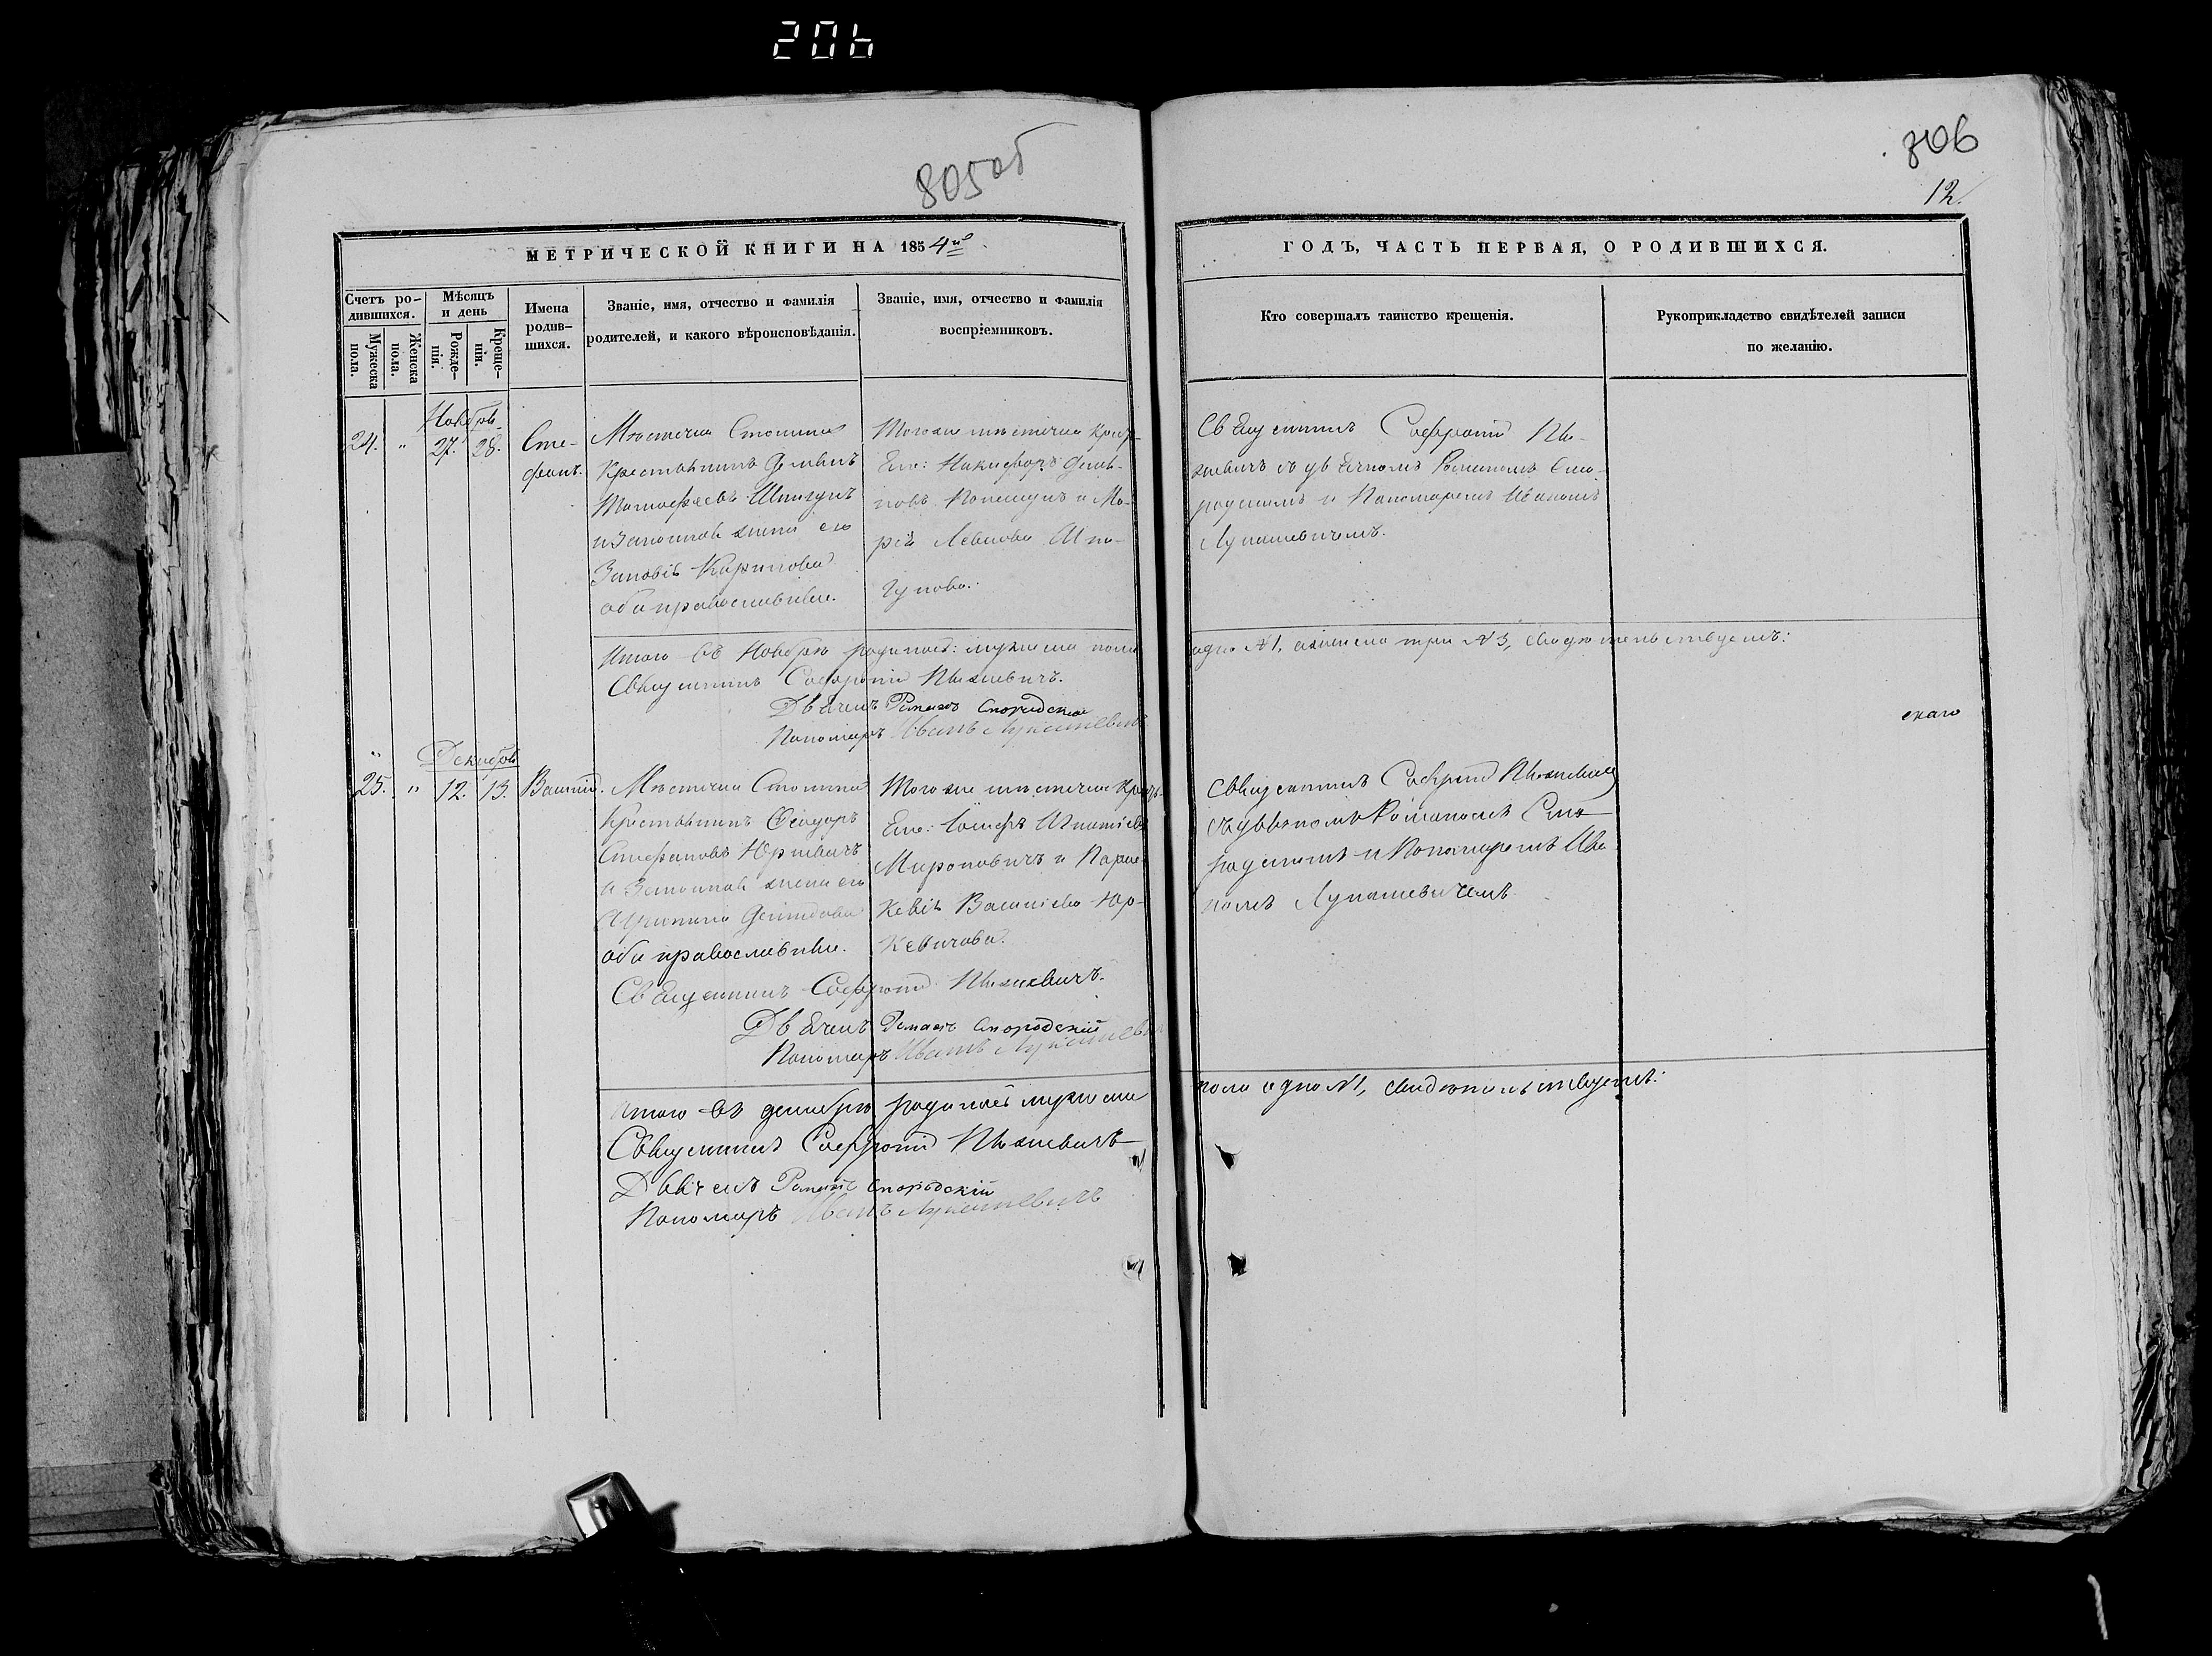 206
805об
806
12.
МЕТРИЧЕСКОЙ КНИГИ НА 1854й
ГОДЪ, ЧАСТЬ ПЕРВАЯ, О РОДИВШИХСЯ.
Счетъ ро-
дившихся.
Мужеска
пола.
Женска
пола.
Мѣсяцъ
и день
Рожде-
нія.
Креще-
нія.
Имена
родив-
шихся.
Званіе, имя, отчество и фамилія
родителей, и какого вѣроисповѣданія.
Званіе, имя, отчество и фамилія
воспріемниковъ.
Кто совершалъ таинство крещенія.
Рукоприкладство свидѣтелей записи
по желанію.
Ноябрь
24. " 27. 28.
Сте-
фанъ.
Мѣстечка Столина
Крестьянинъ Демьянъ
и законная жена его
Зиновія Карпова
оба православные.
Тогоже мѣстечка
Никифоръ Демья-
новъ и Ма-
рія
Священникъ Софроній
съ дьячкомъ Романомъ
и Пономаремъ Иваномъ
Лукашевичемъ.
Итого въ Ноябрѣ родилось: мужеска пола
одно №1, женска три №3, свидѣтельствуемъ:
Священникъ Софроній
Дьячекъ Романъ
Пономарь Иванъ Лукашевичъ
скаго
Декабрь
25. " 12. 13.
Василій.
Мѣстечка Столина
Крестьянинъ Ѳеодоръ
Стефановъ Юркевичъ
и Законная жена его
оба православные.
Тогоже мѣстечка
Іосифъ Игнатіевъ
Мироновичъ и Парас-
кевія Василіева Юр-
кевичова.
Священникъ Софроній
съ дьячкомъ Романомъ
и Пономаремъ Ива-
номъ Лукашевичемъ
Священникъ Софроній
Дьячекъ Романъ
Пономарь Иванъ Лукашевичъ
Итого въ декабрѣ родилось мужеска
пола одно №1, свидѣтельствуемъ:
Священникъ Софроній
Дьячекъ Романъ
Пономарь Иванъ Лукашевичъ